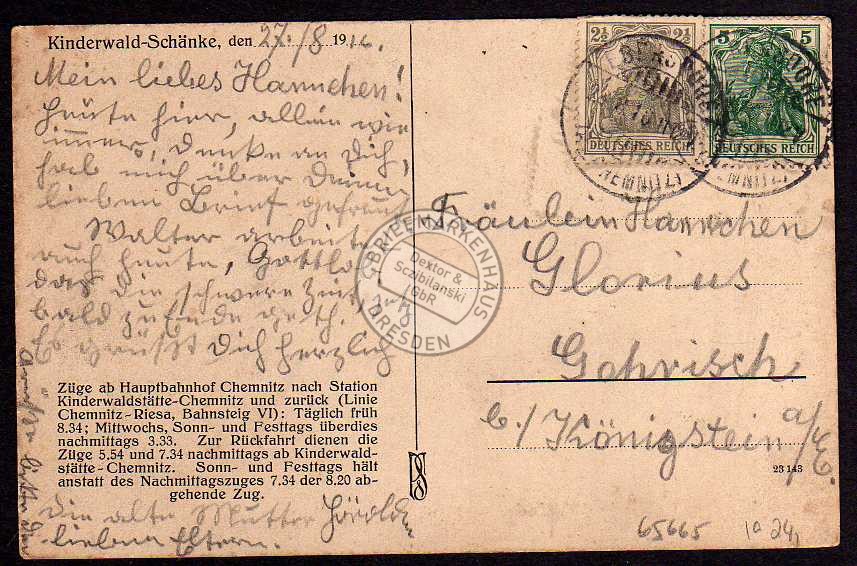 Kinderwald-Schänke, den 27./8 1916.
Mein liebes Hannchen!
Heute hier, allein wie
immer, denke an Dich,
hab mich über Deinen
lieben Brief gefreut
Walter arbeitet
auch heute, Gottlob
das die schwere Zeit
bald zu Ende geht.
Es grüßt Dich herzlich
Züge ab Hauptbahnhof Chemnitz nach Station
Kinderwaldstätte-Chemnitz und zurück (Linie
Chemnitz-Riesa, Bahnsteig VI): Täglich früh
8.34; Mittwochs, Sonn- und Festtags überdies
nachmittags 3.33. Zur Rückfahrt dienen die
Züge 5.54 und 7.34 nachmittags ab Kinderwald-
stätte-Chemnitz. Sonn- und Festtags hält
anstatt des Nachmittagszuges 7.34 der 8.20 ab-
gehende Zug.
die alte Mutter
lieben Eltern.
2½ 2½
DEUTSCHES REICH
5 5
DEUTSCHES REICH
Fräulein Hannchen
Glorius
Gohrisch
b./Königstein a/E.
23143
65665 10 24,
BRIEFMARKENHAUS
Dextor &
Sczibilanski
GbR
DRESDEN